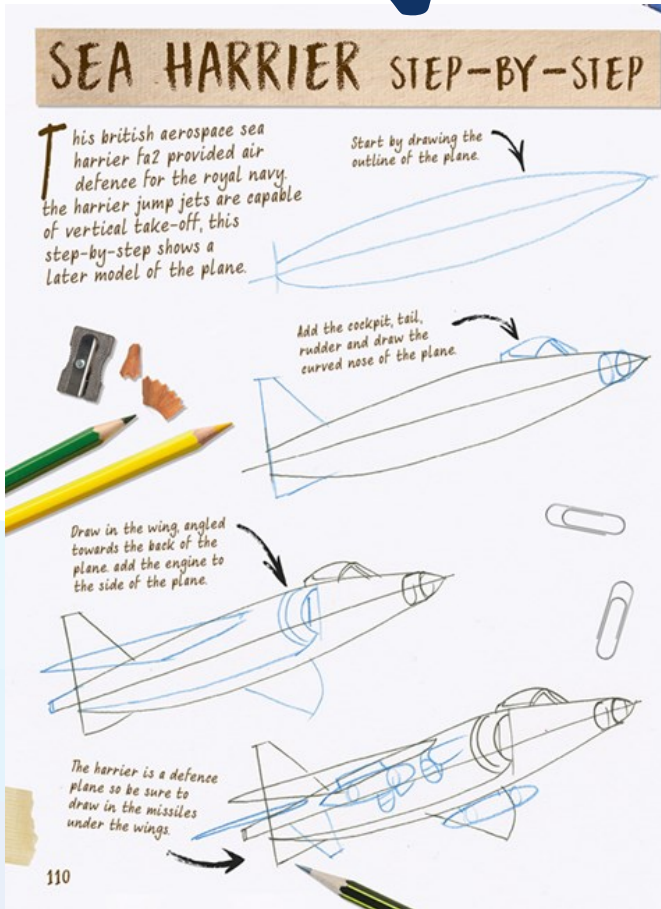 SEA HARRIER STEP-BY-STEP
This british aerospace sea
harrier fa2 provided air
defence for the royal navy.
the harrier jump jets are capable
of vertical take-off, this
step-by-step shows a
later model of the plane.
Start by drawing the
outline of the plane.
Add the cockpit, tail,
rudder and draw the
curved nose of the plane.
Draw in the wing, angled
towards the back of the
plane. add the engine to
the side of the plane.
The harrier is a defence
plane so be sure to
draw in the missiles
under the wings.
110